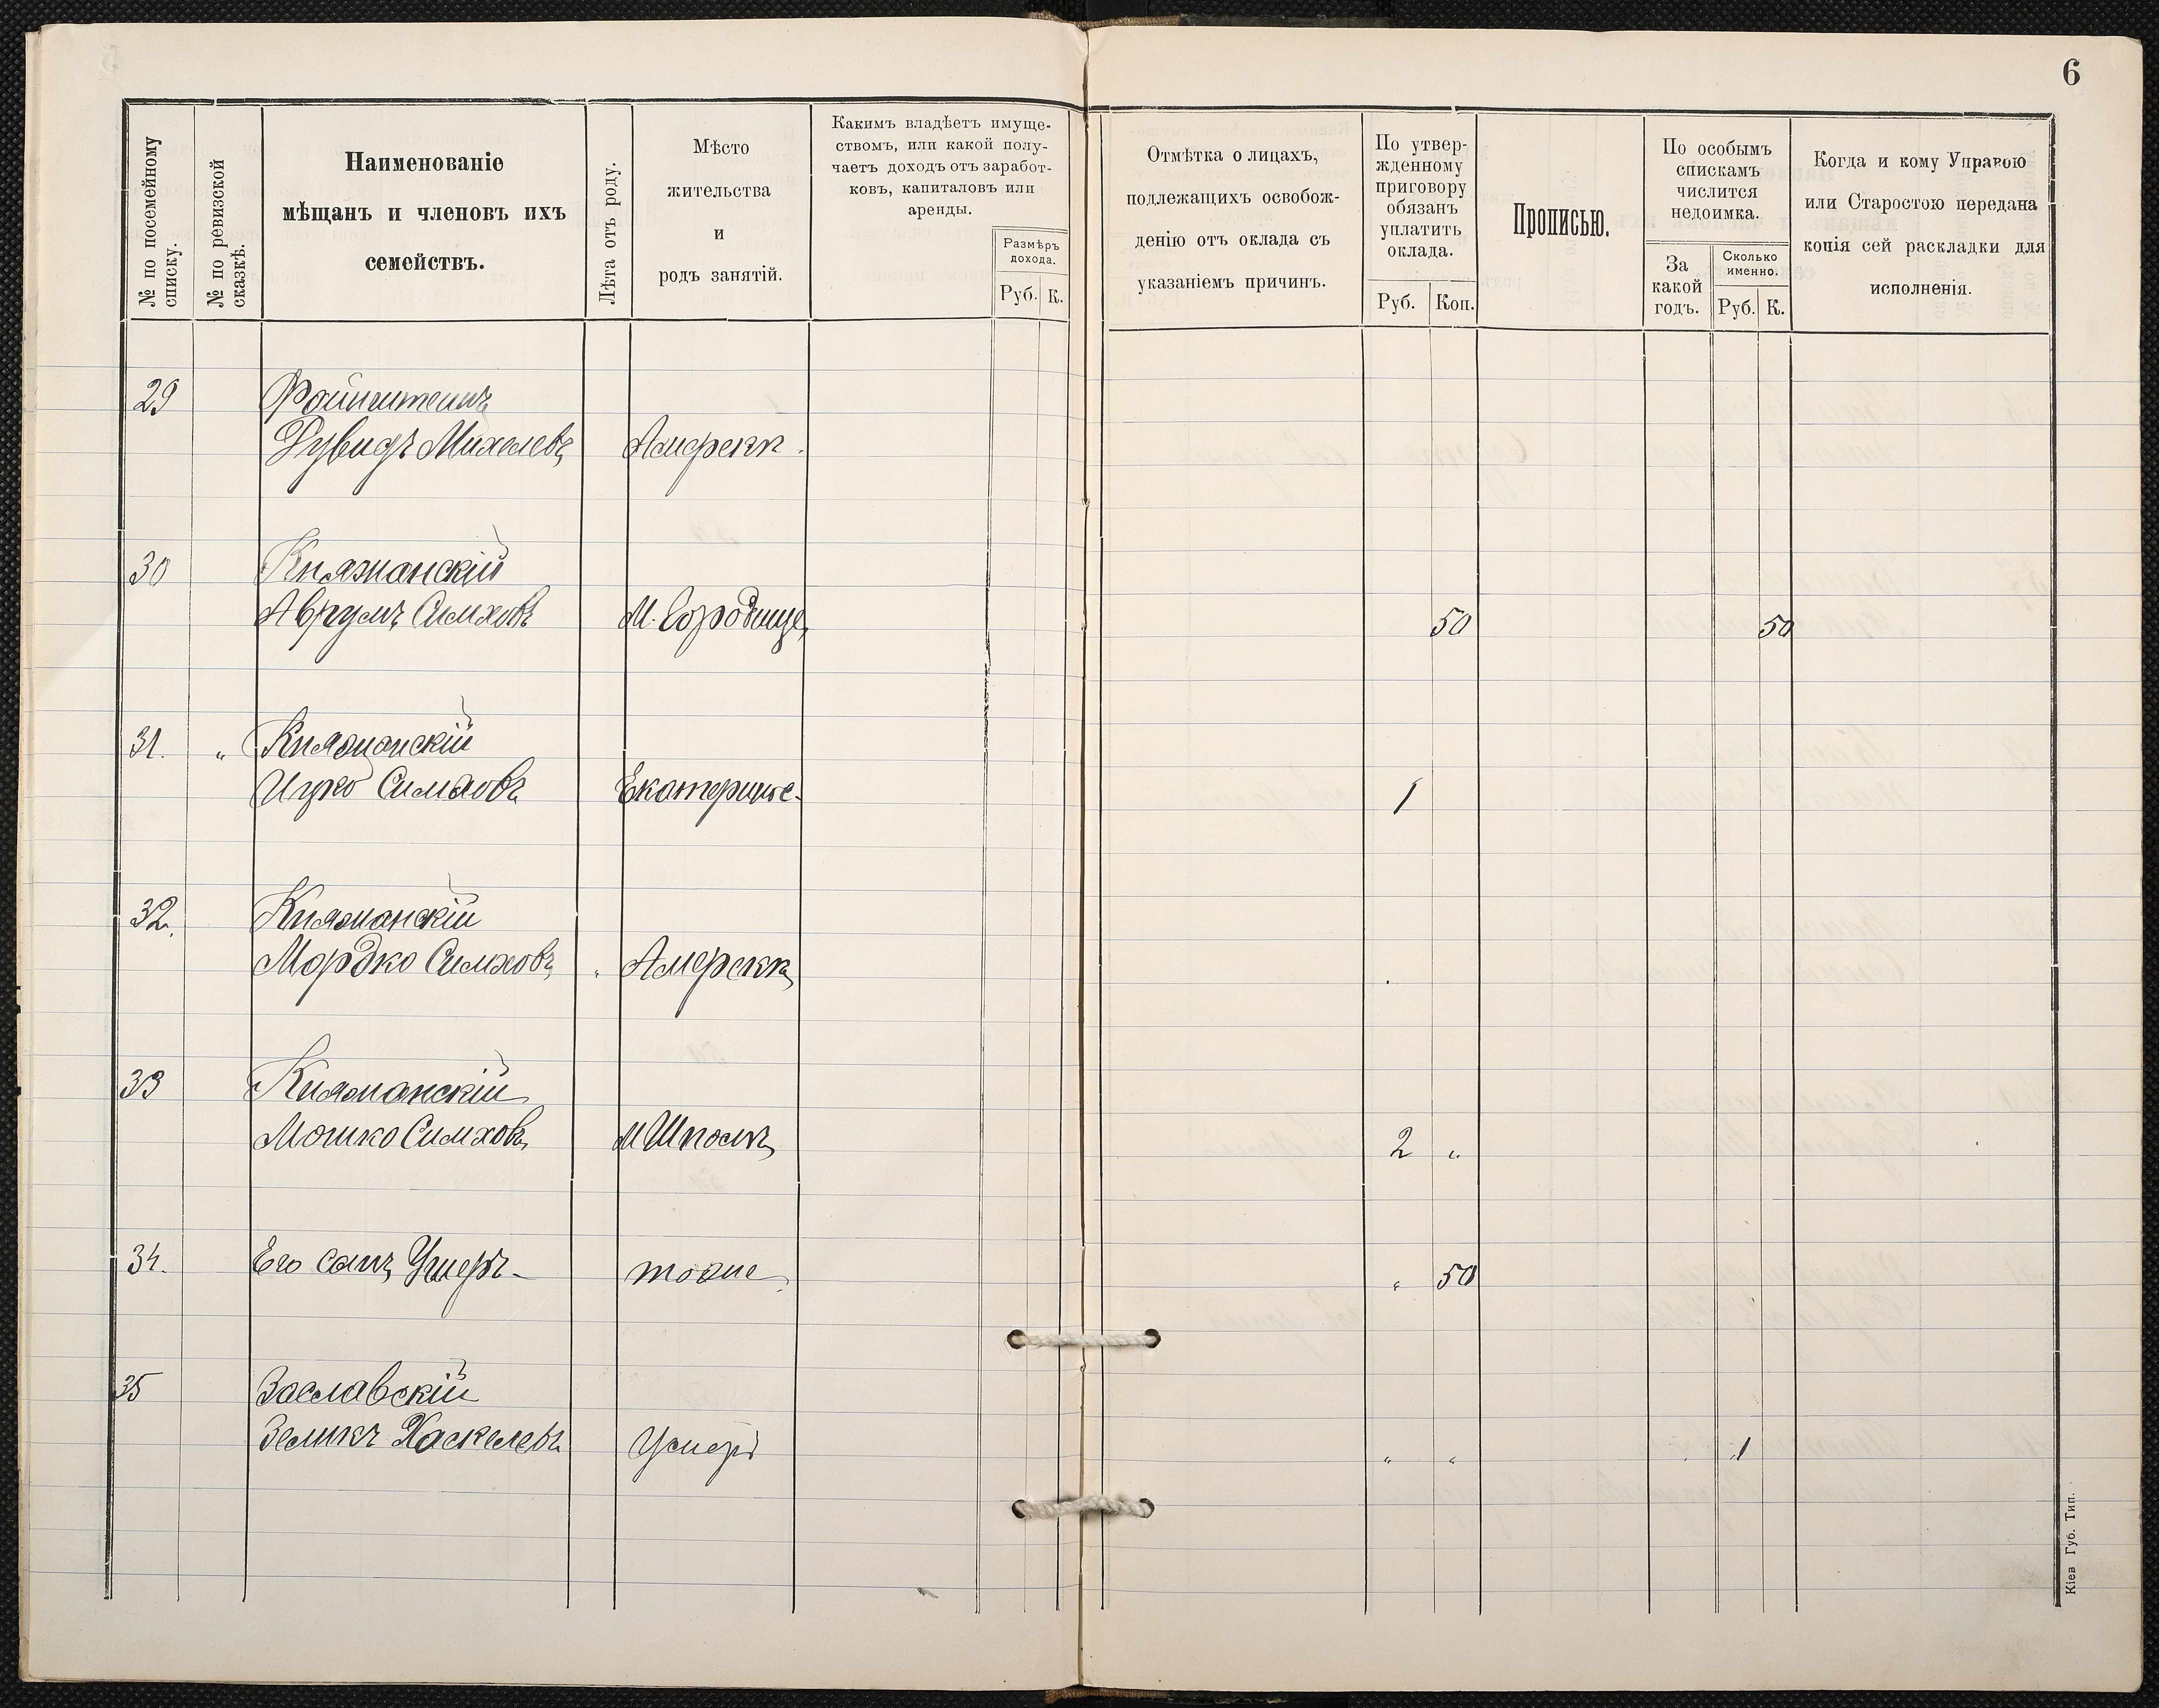 6
№ по посемейному списку.
№ по ревизской сказкѣ.
Наименованіе
мѣщанъ и членовъ ихъ
семействъ.
Лѣта отъ роду.
Мѣсто
жительства
и
родъ занятій.
Какимъ владѣетъ имуще-
ствомъ, или какой полу-
чаетъ доходъ отъ заработ-
ковъ, капиталовъ или
аренды.
Размѣръ
дохода.
Руб. К.
Отмѣтка о лицахъ,
подлежащихъ освобож-
денію отъ оклада съ
указаніемъ причинъ.
По утвер-
жденному
приговору
обязанъ
уплатить
оклада.
Руб. Коп.
Прописью.
По особымъ
спискамъ
числится
недоимка.
За
какой
годъ.
Сколько
именно.
Руб. К.
Когда и кому Управою
или Старостою передана
копія сей раскладки для
исполненія.
29 Файнштейнъ
Дувидъ Михелевъ Америкѣ.
30 Княжанскій
Аврумъ Симховъ М. Городище 50 50
31. " Княжанскій
Ицко Симховъ Екатерино. 1
32. Княжанскій
Мордко Симховъ " Америкѣ
33 Княжанскій
Мошко Симховъ М Шполѣ 2 "
34. Его сынъ Ушеръ тоже " 50
35 Заславскій
Зеликъ Хаскелевъ Умеръ " " 1
Кіев Губ. Тип.